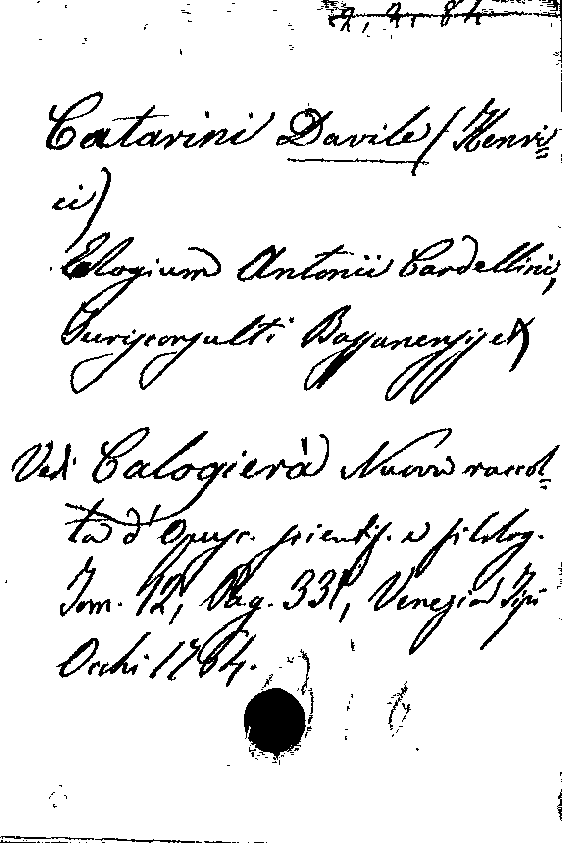 2, 2. 84
Catarini Davile (Henri=
ci)
Elogium Antonii Cardellini,
Jurisconsulti Bassanensis et
Vedi Calogierà Nuova raccol=
ta d'Opusc. scientif. e filolog.
Tom. 12, Pag. 331, Venezia Tipi
Occhi 1764.